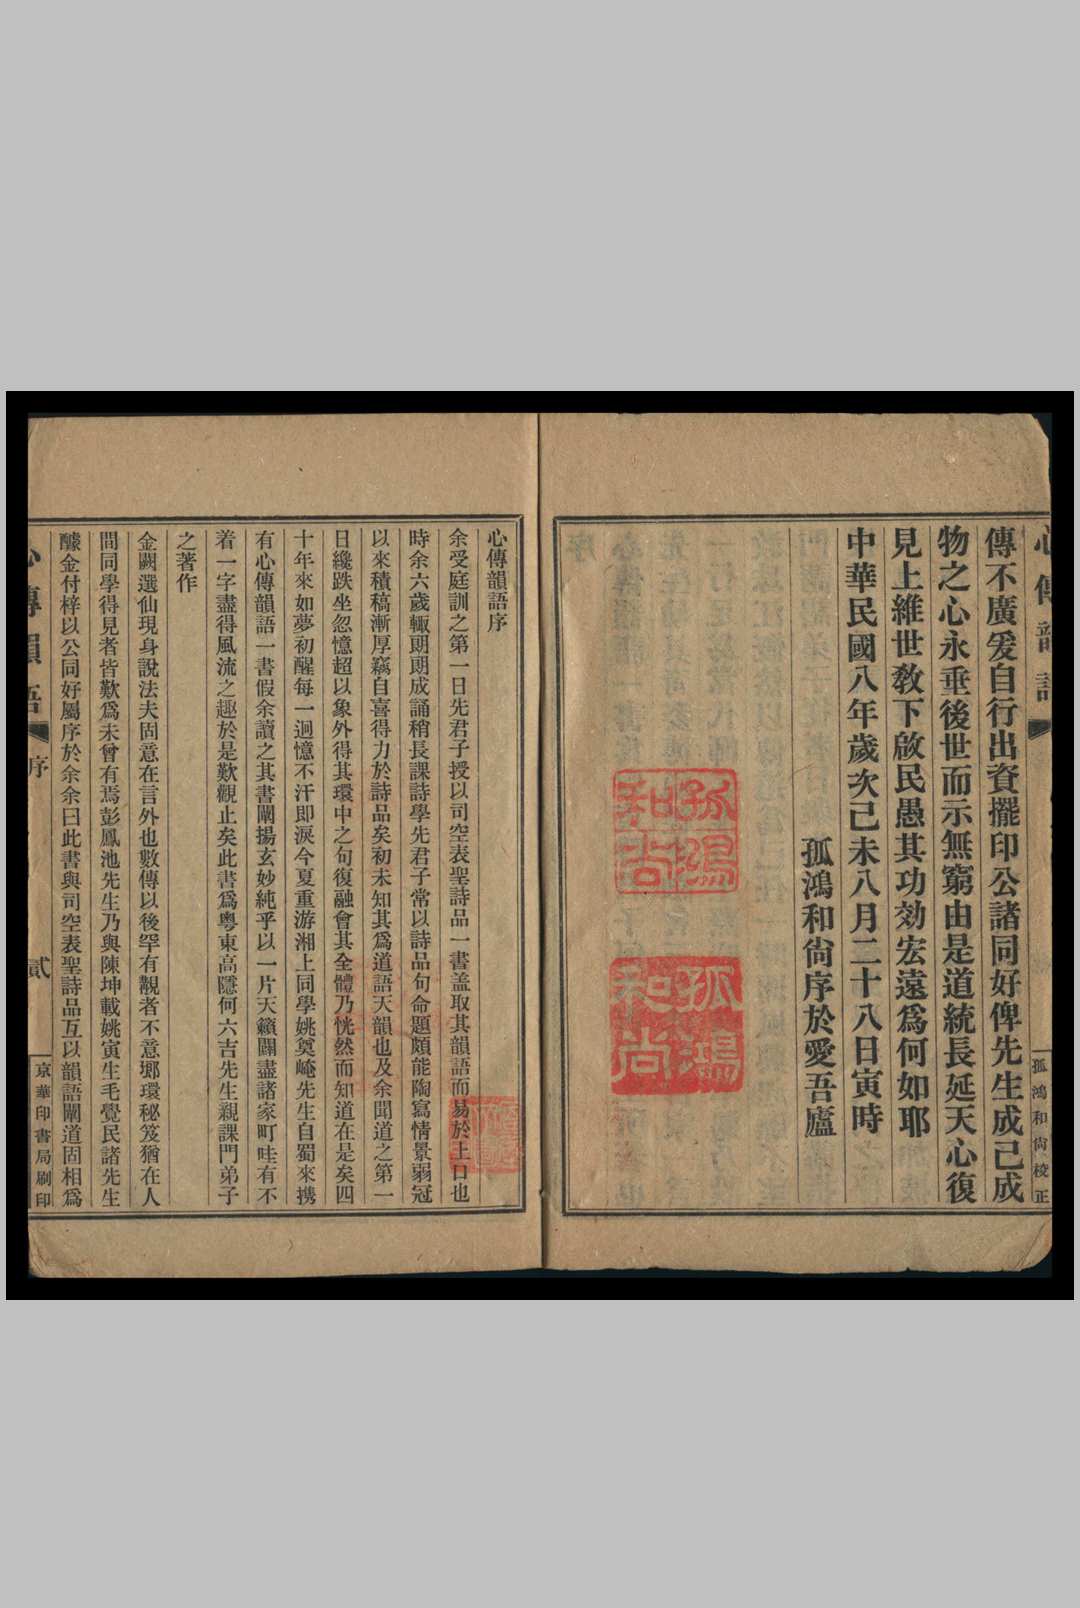 心傳韻語
孤鴻和尙校正
傳不廣爰自行出資擺印公諸同好俾先生成己成
物之心永垂後世而示無窮由是道統長延天心復
見上維世敎下啟民愚其功効宏遠爲何如耶
中華民國八年歲次己未八月二十八日寅時
孤鴻和尙序於愛吾廬
孤鴻和尙
孤鴻和尙
心傳韻語序
余受庭訓之第一日先君子授以司空表聖詩品一書盖取其韻語而易於上口也
時余六歲輒朗朗成誦稍長課詩學先君子常以詩品句命題頗能陶寫情景弱冠
以來積稿漸厚竊自喜得力於詩品矣初未知其爲道語天韻也及余聞道之第一
日纔跌坐忽憶超以象外得其環中之句復融會其全體乃恍然而知道在是矣四
十年來如夢初醒每一迴憶不汗即淚今夏重游湘上同學姚奠崦先生自蜀來携
有心傳韻語一書假余讀之其書闡揚玄妙純乎以一片天籟闢盡諸家町畦有不
着一字盡得風流之趣於是歎觀止矣此書爲粤東高隱何六吉先生親課門弟子
之著作
金闕選仙現身說法夫固意在言外也數傳以後罕有覯者不意瑯環秘笈猶在人
間同學得見者皆歎爲未曾有焉彭鳳池先生乃與陳坤載姚寅生毛覺民諸先生
醵金付梓以公同好屬序於余余曰此書與司空表聖詩品互以韻語闡道固相爲
心傳韻語
序
貳
京華印書局刷印